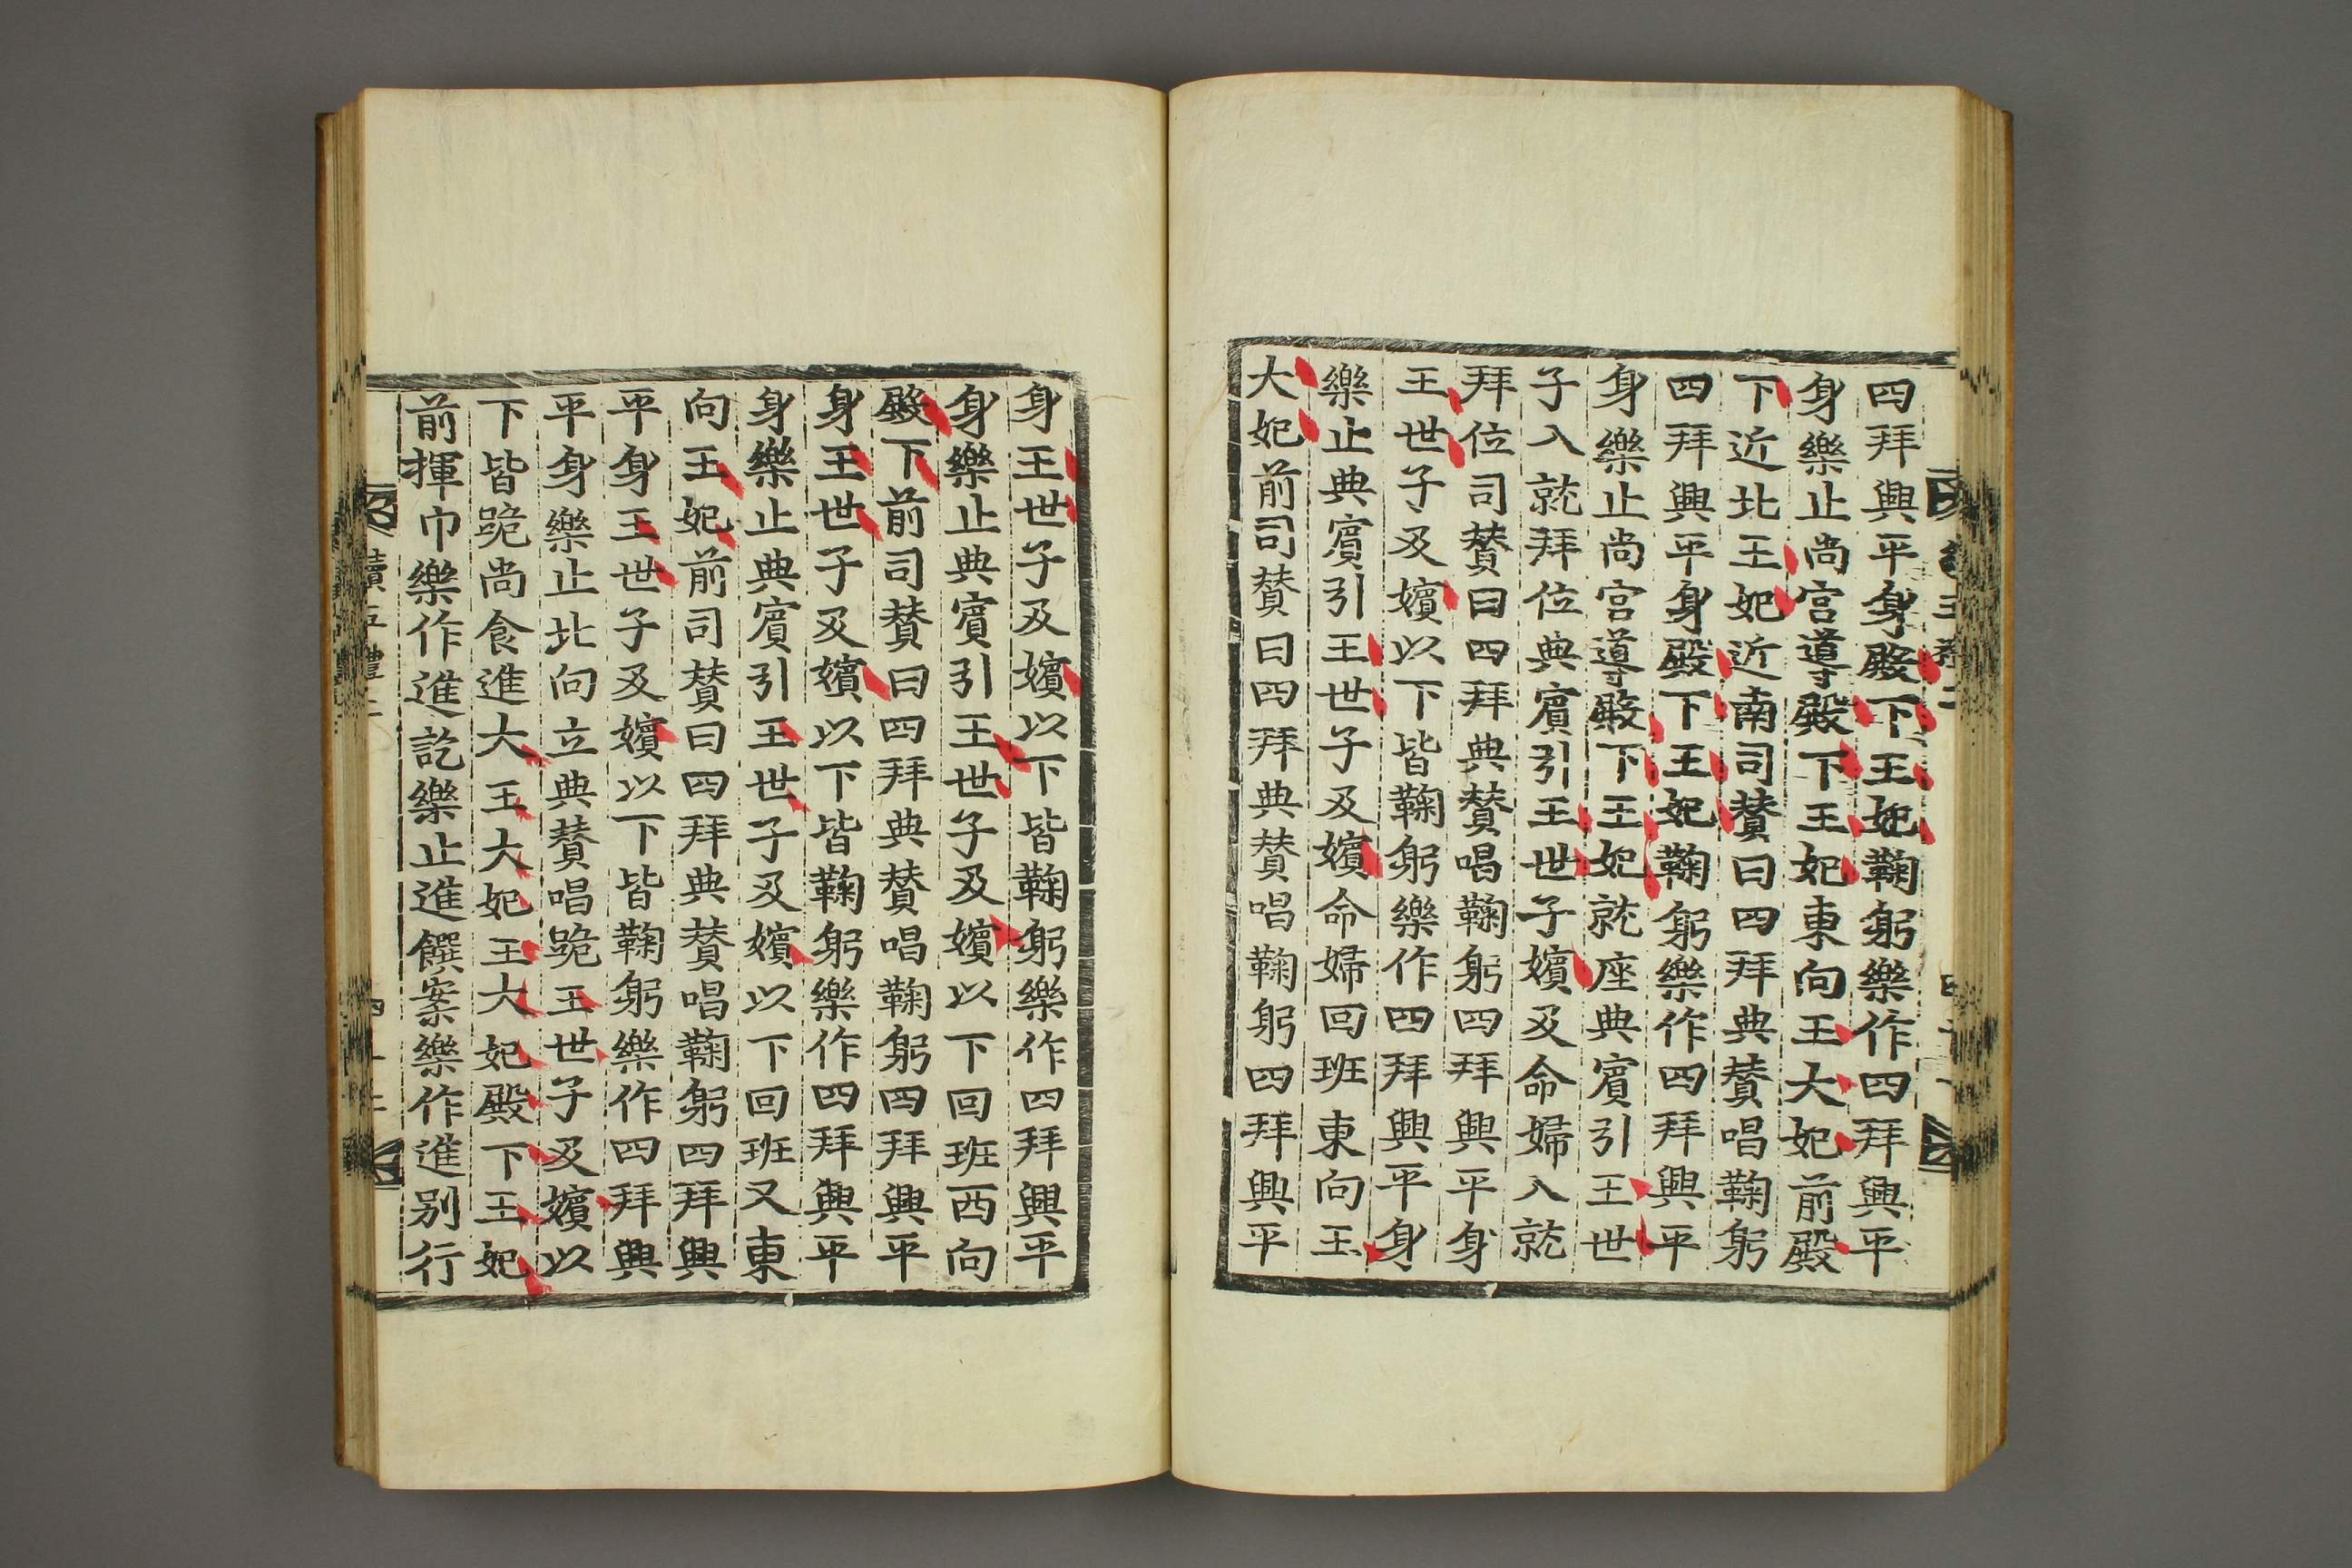 四拜興平身殿下王妃鞠躬樂作四拜興平
身樂止尚宮導殿下王妃東向王大妃前殿
下近北王妃近南司贊曰四拜典贊唱鞠躬
四拜興平身殿下王妃鞠躬樂作四拜興平
身樂止尚宮導殿下王妃就座典賓引王世
子入就拜位典賓引王世子嬪及命婦入就
拜位司贊曰四拜典贊唱鞠躬四拜興平身
王世子及嬪以下皆鞠躬樂作四拜興平身
樂止典賓引王世子及嬪命婦回班東向王
大妃前司贊曰四拜典贊唱鞠躬四拜興平
身王世子及嬪以下皆鞠躬樂作四拜興平
身樂止典賓引王世子及嬪以下回班西向
殿下前司贊曰四拜典贊唱鞠躬四拜興平
身王世子及嬪以下皆鞠躬樂作四拜興平
身樂止典賓引王世子及嬪以下回班又東
向王妃前司贊曰四拜典贊唱鞠躬四拜興
平身王世子及嬪以下皆鞠躬樂作四拜興
平身樂止北向立典贊唱跪王世子及嬪以
下皆跪尚食進大王大妃王大妃殿下王妃
前揮巾樂作進訖樂止進饌案樂作進別行